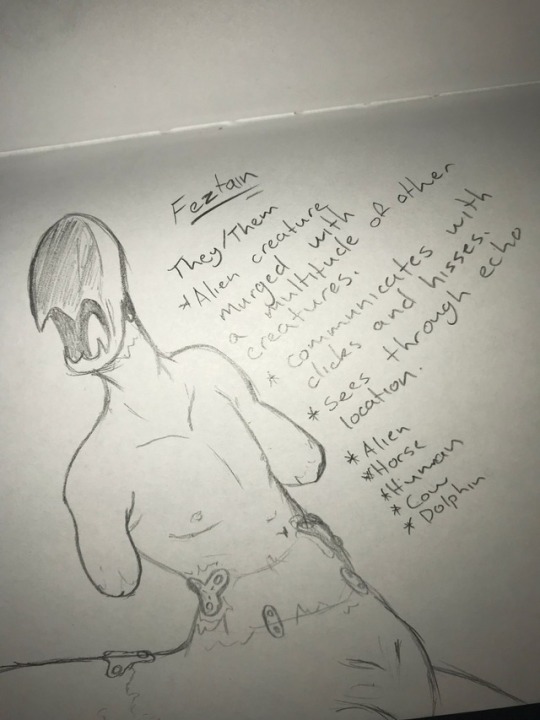 Feztain
They/Them
*Alien creature
murged with
a multitude of other
creatures.
* communicates with
clicks and hisses.
* sees through echo
location.
*Alien
*Horse
*Human
*Cow
*Dolphin